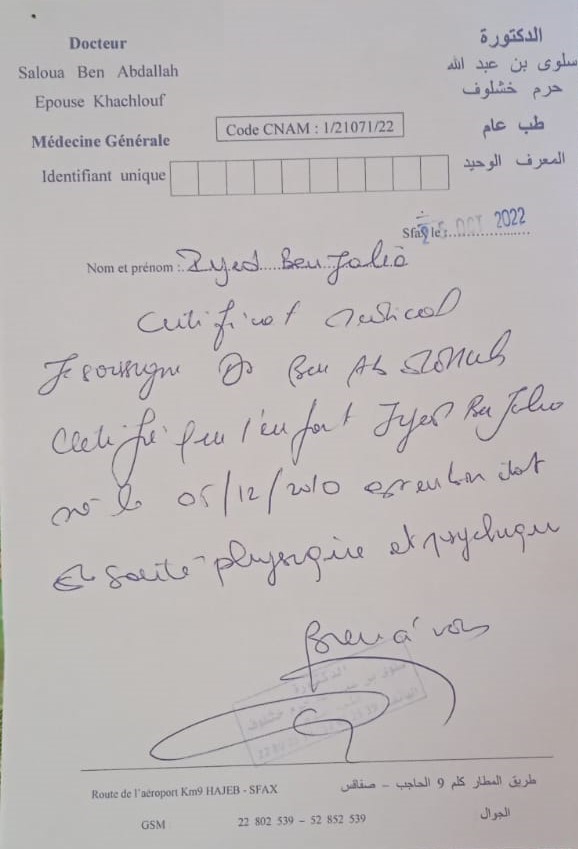 Docteur
Saloua Ben Abdallah
Epouse Khachlouf
Médecine Générale
Identifiant unique
Code CNAM : 1/21071/22
الدكتورة
سلوى بن عبد الله
حرم خشلوف
طب عام
المعرف الوحيد
Sfax le : OCT 2022
Nom et prénom : Zyed Ben
Certificat Medical
Je soussigne Dr Ben Abdallah
Certifie que l'enfant Zyed Ben
né le 05/12/2010 est en bon état
de santé physique et psychique
Bien à vous
الدكتورة
Route de l'aéroport Km9 HAJEB - SFAX
طريق المطار كلم 9 الحاجب – صفاقس
GSM 22 802 539 – 52 852 539 الجوال